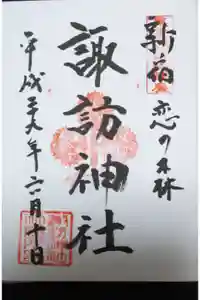 新宿 恋の森
諏訪神社
平成二十九年六月十日